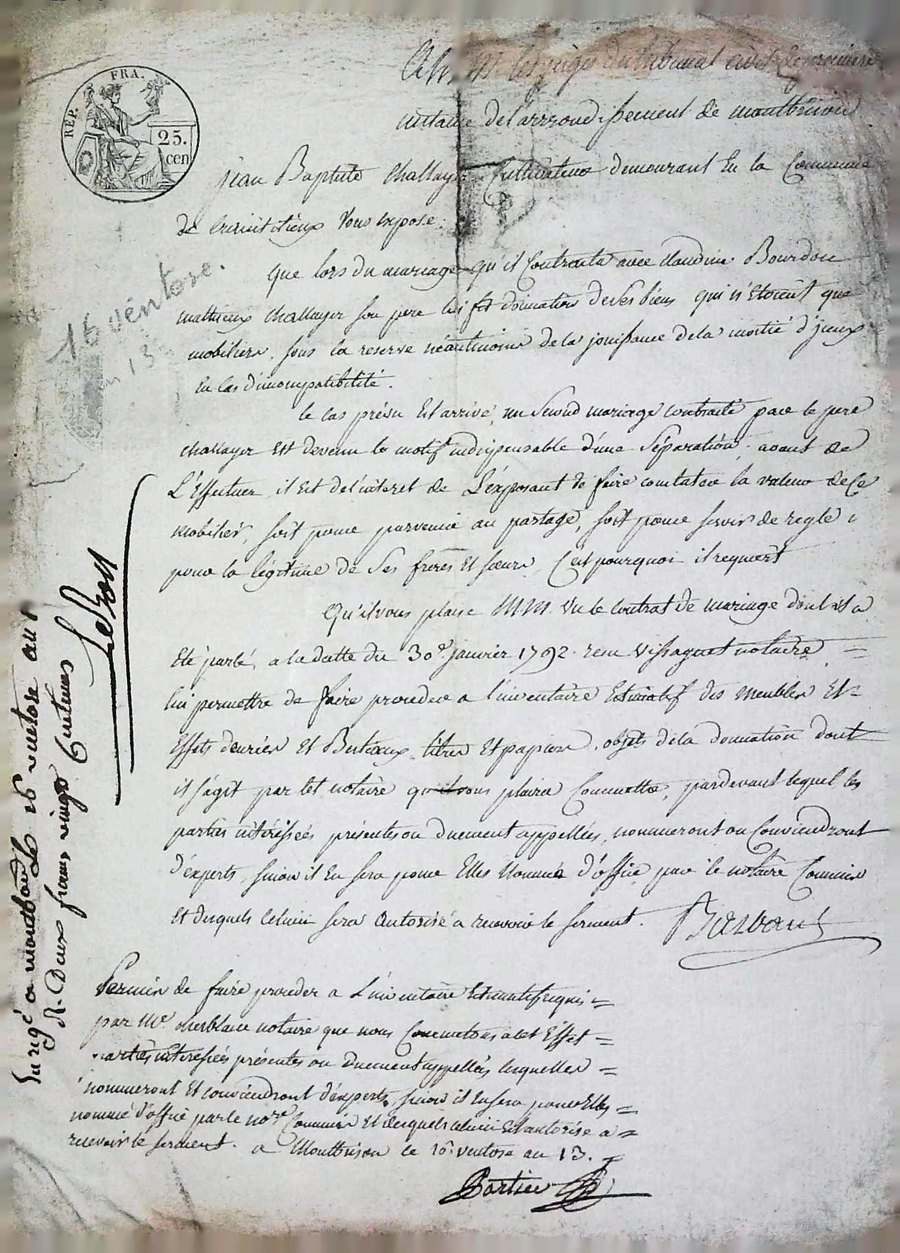 REP. FRA.
25.
cen
A M. M. les juges du tribunal civil de premiere
instance de l'arrondissement de montbrison
jean Baptiste challayer Cultivateur demeurant En la Commune
de Vous expose.
que lors du mariage qu'il Contracta avec Claudine Bourdon
mathieux challayer son pere lui fit donnation de ses biens qui n'étoient que
mobiliers, sous la reserve néantmoins de la jouissance de la moitié d'jceux
En cas d'incompatibilité.
le cas prévu Est arrivé, un second mariage contracté par le pere
challayer Est devenu le motif indispensable d'une Séparation. avant de
L'Effectuer, il Est de l'interet de L'exposant de faire constater la valeur de Ce
mobilier, soit pour parvenir au partage, soit pour servir de regle
pour la légitime de Ses freres Et sœurs. C'est pourquoi il requiert
Qu'il vous plaise MM. Vu le contrat de mariage dont il a
Eté parlé, a la datte du 30e. janvier 1792. reçu Vissaguet notaire,
lui permettre de faire proceder a l'inventaire Estimatif des meubles Et
Effets denrées Et Bestiaux, titres Et papiers, objets de la donnation dont
il s'agit par tel notaire qu'il vous plaira Commettre, pardevant lequel les
parties intéressées présentes ou duement appellées, nommeront ou Conviendront
d'experts, sinon il En sera pour Elles Nommé d'office par le notaire Commis
Et desquels Celuici sera Autorisé a recevoir le serment.
Permis de faire proceder a L'inventaire Estimatif requis
par Me. cherblanc notaire que nous Commettons a cet Effet
parties intéressées présentes ou Duement appellées lesquelles
nommeront Et conviendront d'experts, sinon il En sera pour Elles
nommé d'office par le nore. Commis Et desquels celuici Est autorisé a
recevoir le serment. a Montbrison le 16 ventose an 13.
Portier
16 ventose.
an 13
Enrgé a montbrison le 16 ventose an 13
R. Deux francs vingt Centimes